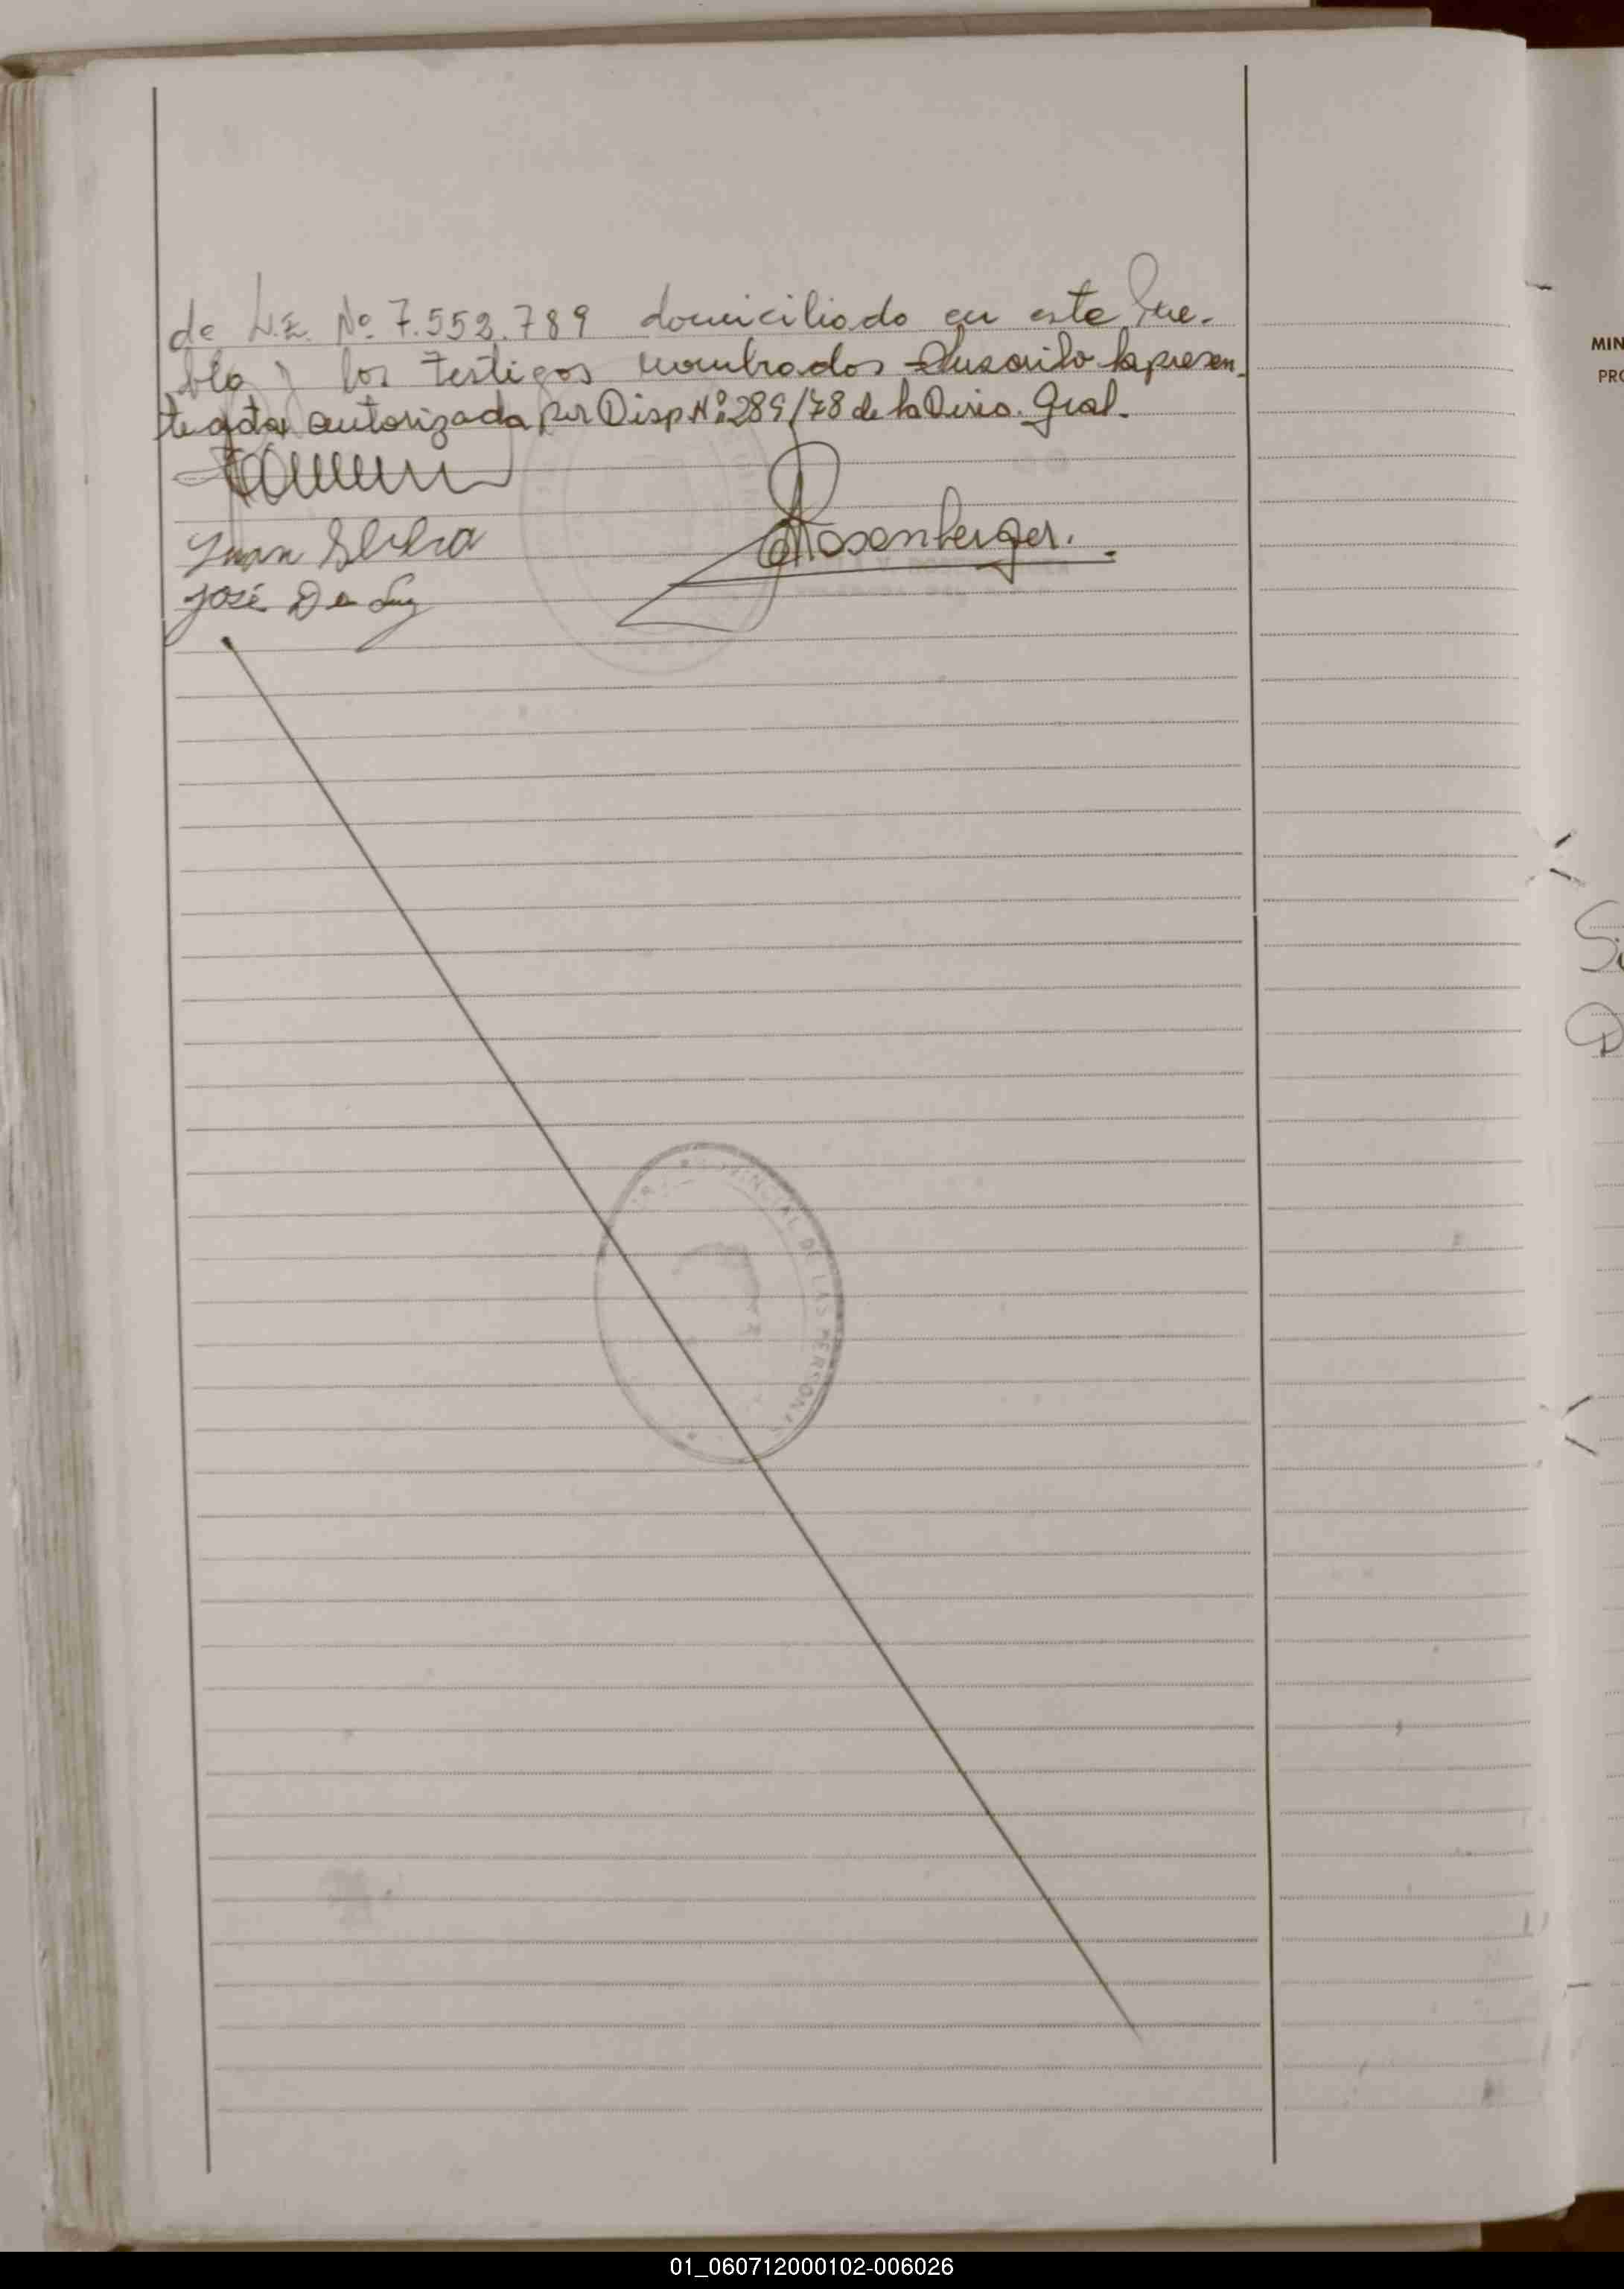 de L.E. Nº 7.552.789 domiciliado en este Pue-
blo y los testigos nombrados Suscribo la presen-
te acta autorizada por Disp Nº 289/78 de la Direc. Gral.
Rosenberger.
Juan Silva
José De Luz
MIN
PRO
VINCIAL DE LAS PERSONAS
01_060712000102-006026